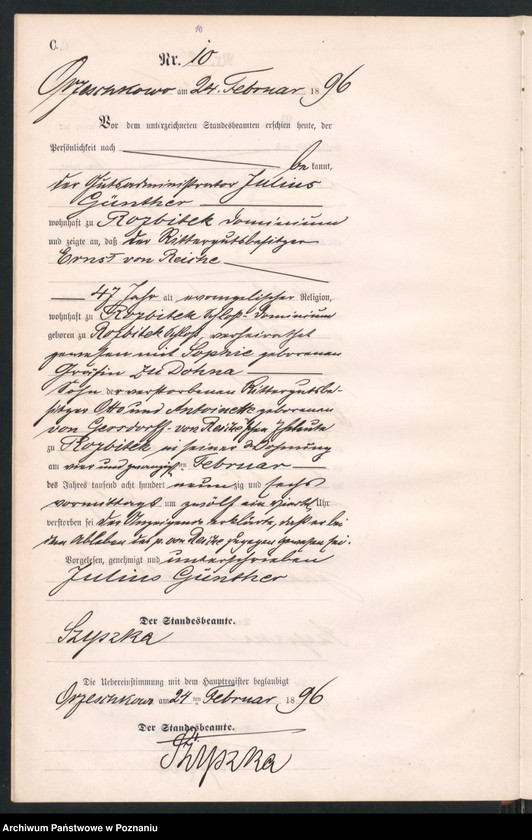 10
C.
Nr. 10
Orzeschkowo am 24. Februar 1896
Vor dem unterzeichneten Standesbeamten erschien heute, der
Persönlichkeit nach
be kannt,
der Gutsadministrator Julius
Günther
wohnhaft zu Rozbitek Dominium
und zeigte an, daß der Rittergutsbesitzer
Ernst von Reiche
47 Jahr alt evangelischer Religion,
wohnhaft zu Rozbitek Schloß-Dominium
geboren zu Rozbitek Schloß, verheirathet
gewesen mit Sophie geborenen
Gräfin zu Dohna
Sohn der verstorbenen Rittergutsbe-
sitzer Otto und Antoinette geborenen
von Gersdorff - von Reiche'schen Eheleute
zu Rozbitek in seiner Wohnung
am vier und zwanzigsten Februar
des Jahres tausend acht hundert neun zig und sechs
vormittags um zwölf ein viertel Uhr
verstorben sei. Der Anzeigende erklärte, daß er bei
dem Ableben des p. von Reiche zugegen gewesen sei.
Vorgelesen, genehmigt und unterschrieben
Julius Günther
Der Standesbeamte.
Szyszka
Die Uebereinstimmung mit dem Hauptregister beglaubigt
Orzeschkowo am 24 ten Februar 1896
Der Standesbeamte.
Szyszka
Archiwum Państwowe w Poznaniu